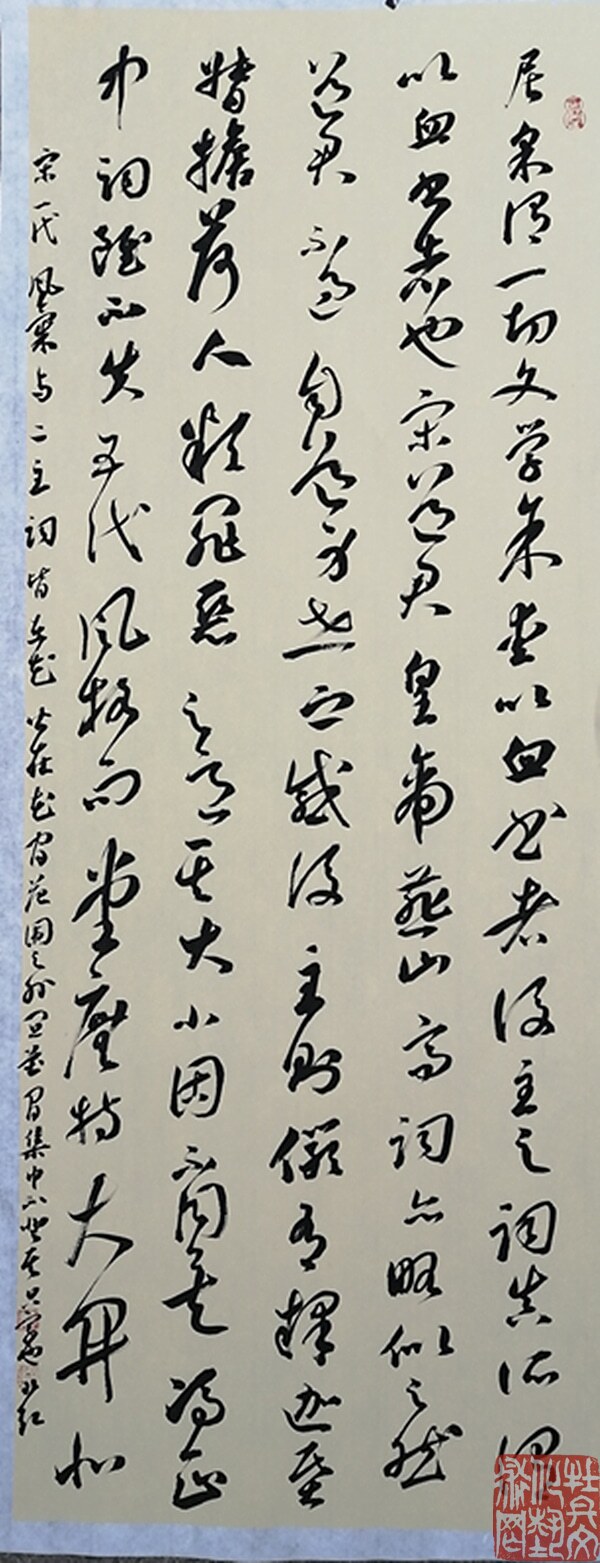 尼采谓一切文学余爱以血书者後主之词真所谓
以血书者也宋道君皇帝燕山亭詞亦略似之然
道君不过自道身世之戚後主則儼有釋迦基
督擔荷人類罪惡之意其大小固不同矣馮正
中詞雖不失五代风格而堂廡特大開北
宋一代风气与二主詞皆在花皆在花间范围之外宜花间集中不登其只字也